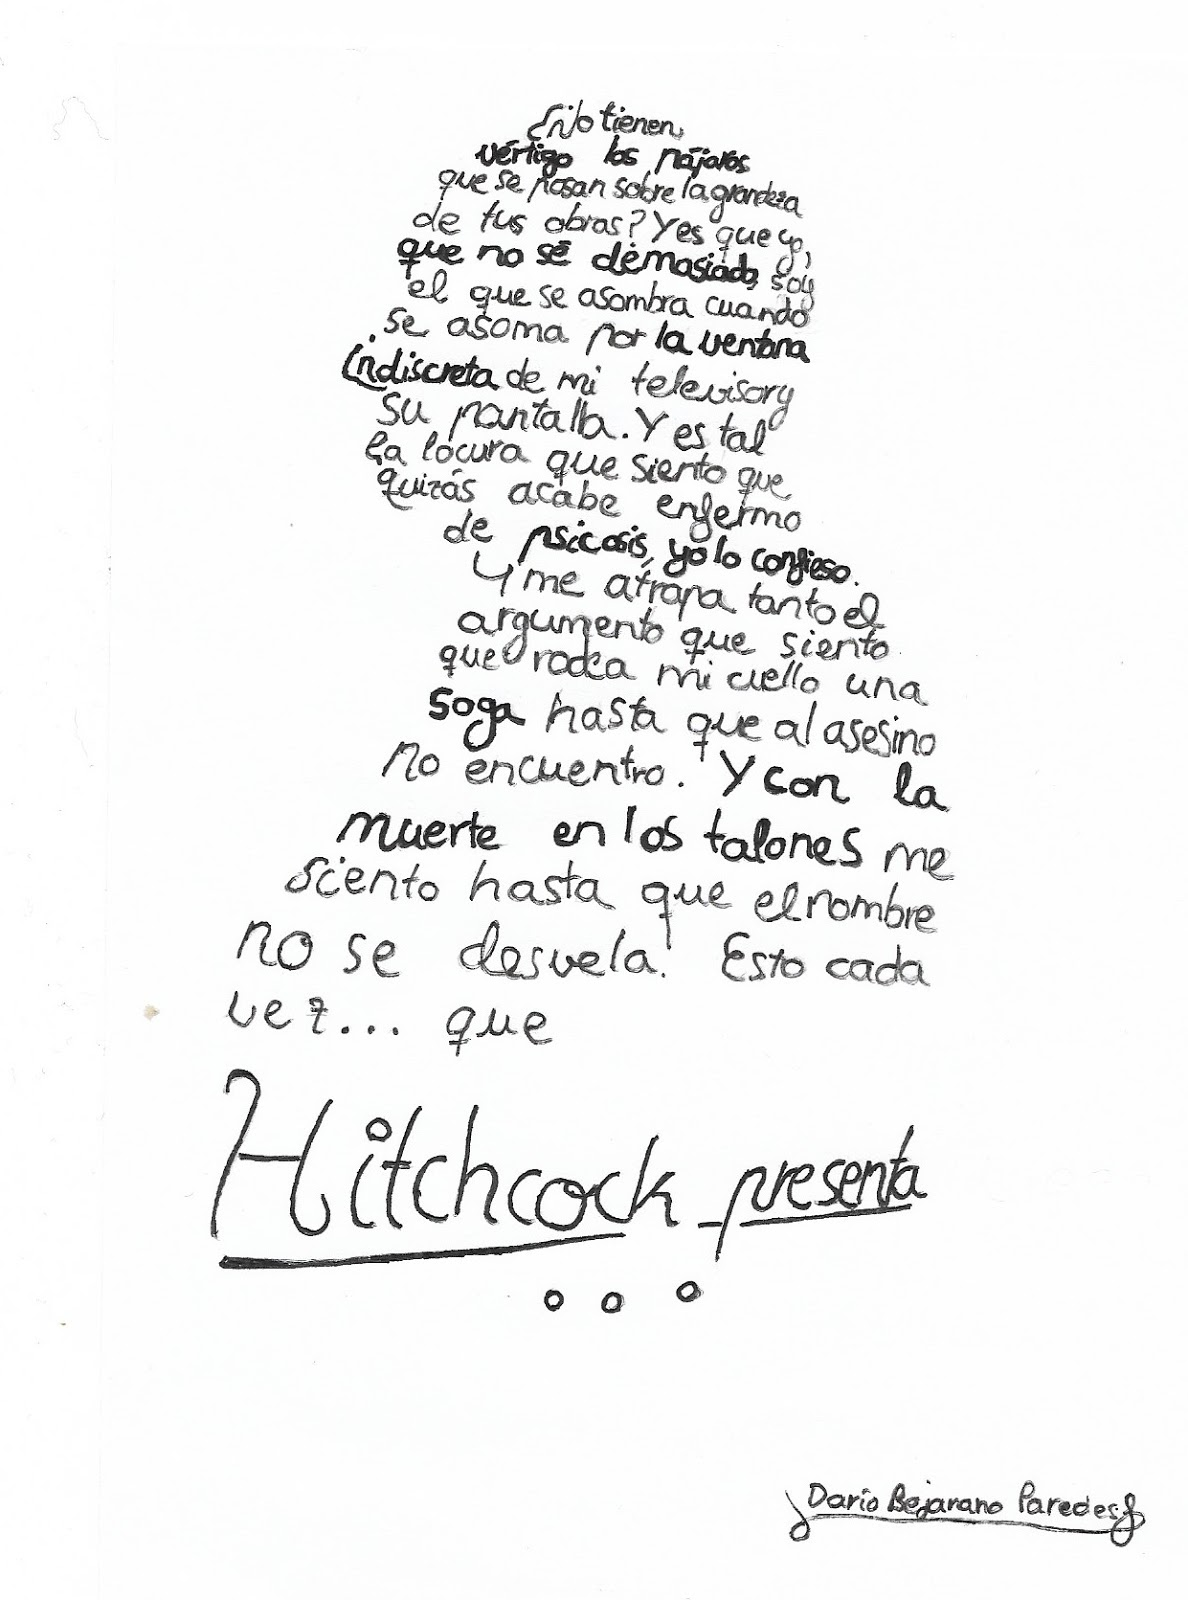 ¿No tienen,
vértigo los pájaros
que se posan sobre la grandeza
de tus obras? Y es que yo,
que no sé demasiado, soy
el que se asombra cuando
se asoma por la ventana
indiscreta de mi televisor y
su pantalla. Y es tal
la locura que siento que
quizás acabe enfermo
de psicosis, yo lo confieso.
Y me atrapa tanto el
argumento que siento
que rodea mi cuello una
soga hasta que al asesino
no encuentro. Y con la
muerte en los talones me
siento hasta que el nombre
no se desvela. Esto cada
vez... que
Hitchcock presenta
...
Darío Bejarano Paredes